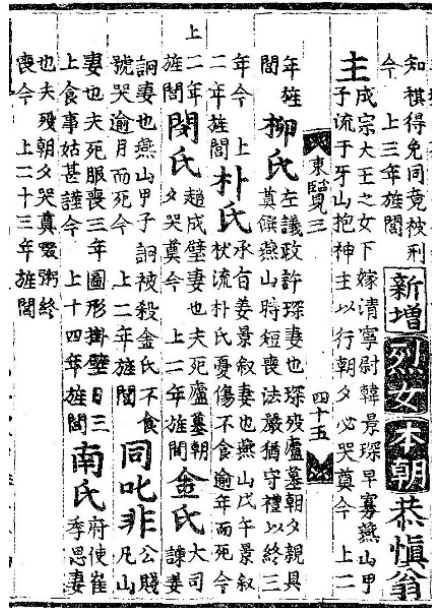 知 棋得免同竟被刑
今 上三年旌閭
新增 烈女 本朝 恭愼翁
主
成宗大王之女下嫁清寧尉韓景琛早寡燕山甲
子流于牙山抱神主以行朝夕必哭奠今 上二
東覽三 四十五
年旌
閭
柳氏
左議政許琛妻也琛歿廬墓朝夕親具
奠饌燕山時短喪法嚴猶守禮以終三
年今 上
二年旌閭
朴氏
承旨姜景叙妻也燕山戊午景叙
杖流朴氏憂傷不食逾年而死今
上二年
旌閭
閔氏
趙成璧妻也夫死廬墓朝
夕哭奠今 上二年旌閭
金氏
大司
諫姜
詗妻也燕山甲子詗被殺金氏不食
號哭逾月而死今 上二年旌閭
同叱非
公賤
凡山
妻也夫死服喪三年圖形掛壁日三
上食事姑甚謹今 上十四年旌閭
南氏
府使崔
季思妻
也夫歿朝夕哭奠啜粥終
喪今 上二十三年旌閭